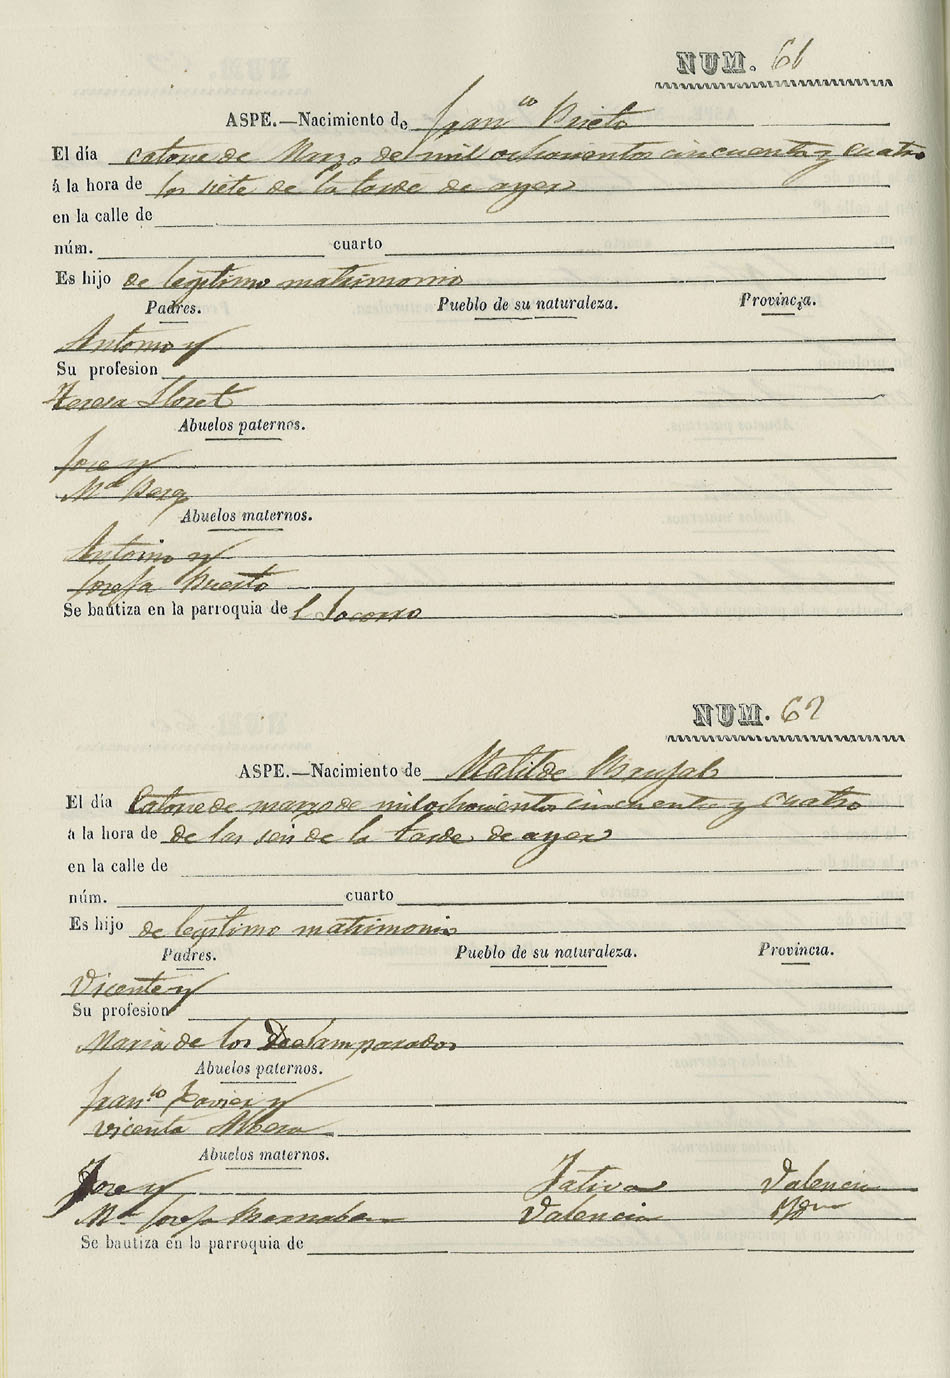 NUM. 61
ASPE.—Nacimiento de Fran.co Prieto
El día catorce de Marzo de mil ochocientos cincuenta y cuatro
á la hora de las siete de la tarde de ayer
en la calle de
núm. cuarto
Es hijo de legitimo matrimonio
Padres. Pueblo de su naturaleza. Provincia.
Antonio y
Su profesion
Teresa Lloret
Abuelos paternos.
Jose y
M.a
Abuelos maternos.
Antonio y
Josefa Puerto
Se bautiza en la parroquia de l Socorro
NUM. 62
ASPE.—Nacimiento de Matilde
El día Catorce de marzo de mil ochocientos cincuenta y cuatro
á la hora de de las seis de la tarde de ayer
en la calle de
núm. cuarto
Es hijo de legitimo matrimonio
Padres. Pueblo de su naturaleza. Provincia.
Vicente y
Su profesion
Maria de los Desamparados
Abuelos paternos.
Fran.co Xavier y
Vicenta
Abuelos maternos.
Jose y Jativa Valencia
M.a Josefa Valencia Ydem
Se bautiza en la parroquia de